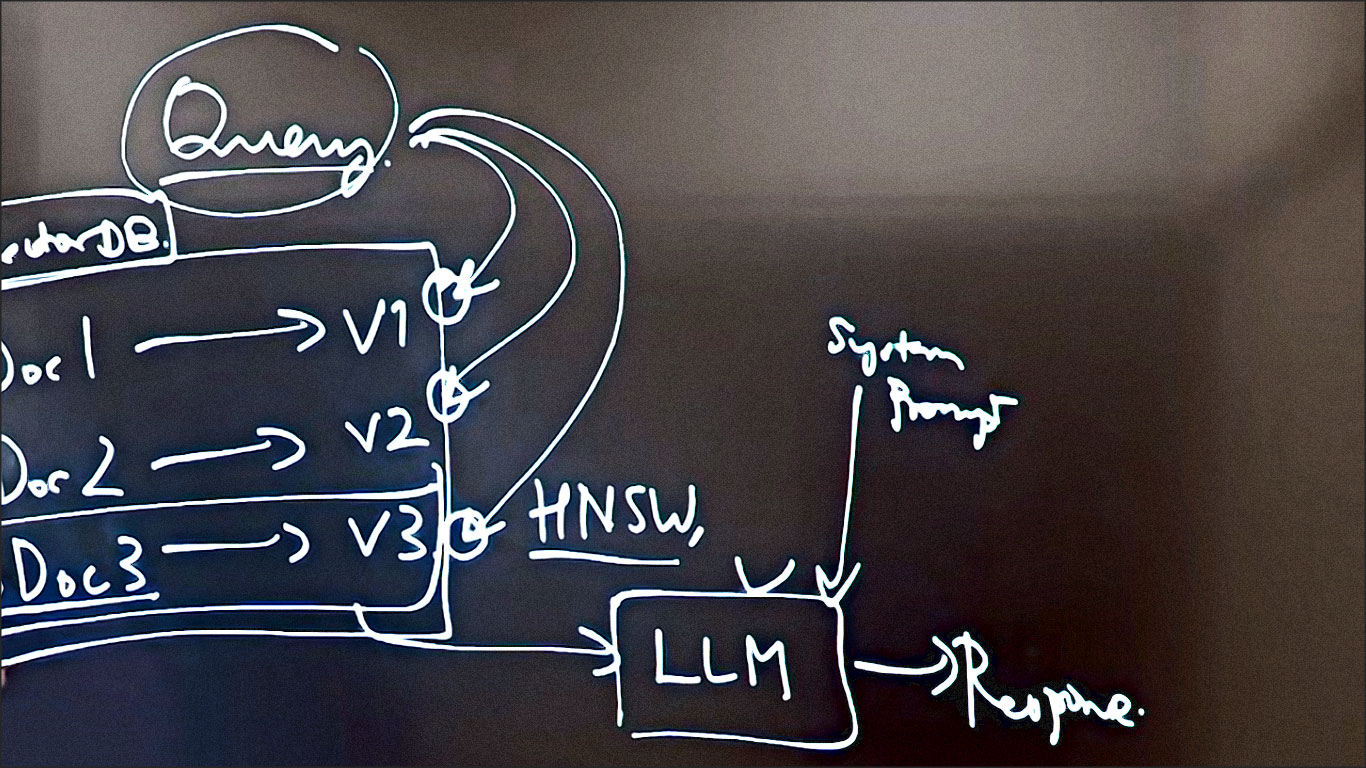 Query.
ectorDB.
Doc 1 → V1
Doc 2 → V2
Doc 3 → V3
HNSW,
System
Prompt
LLM
Response.